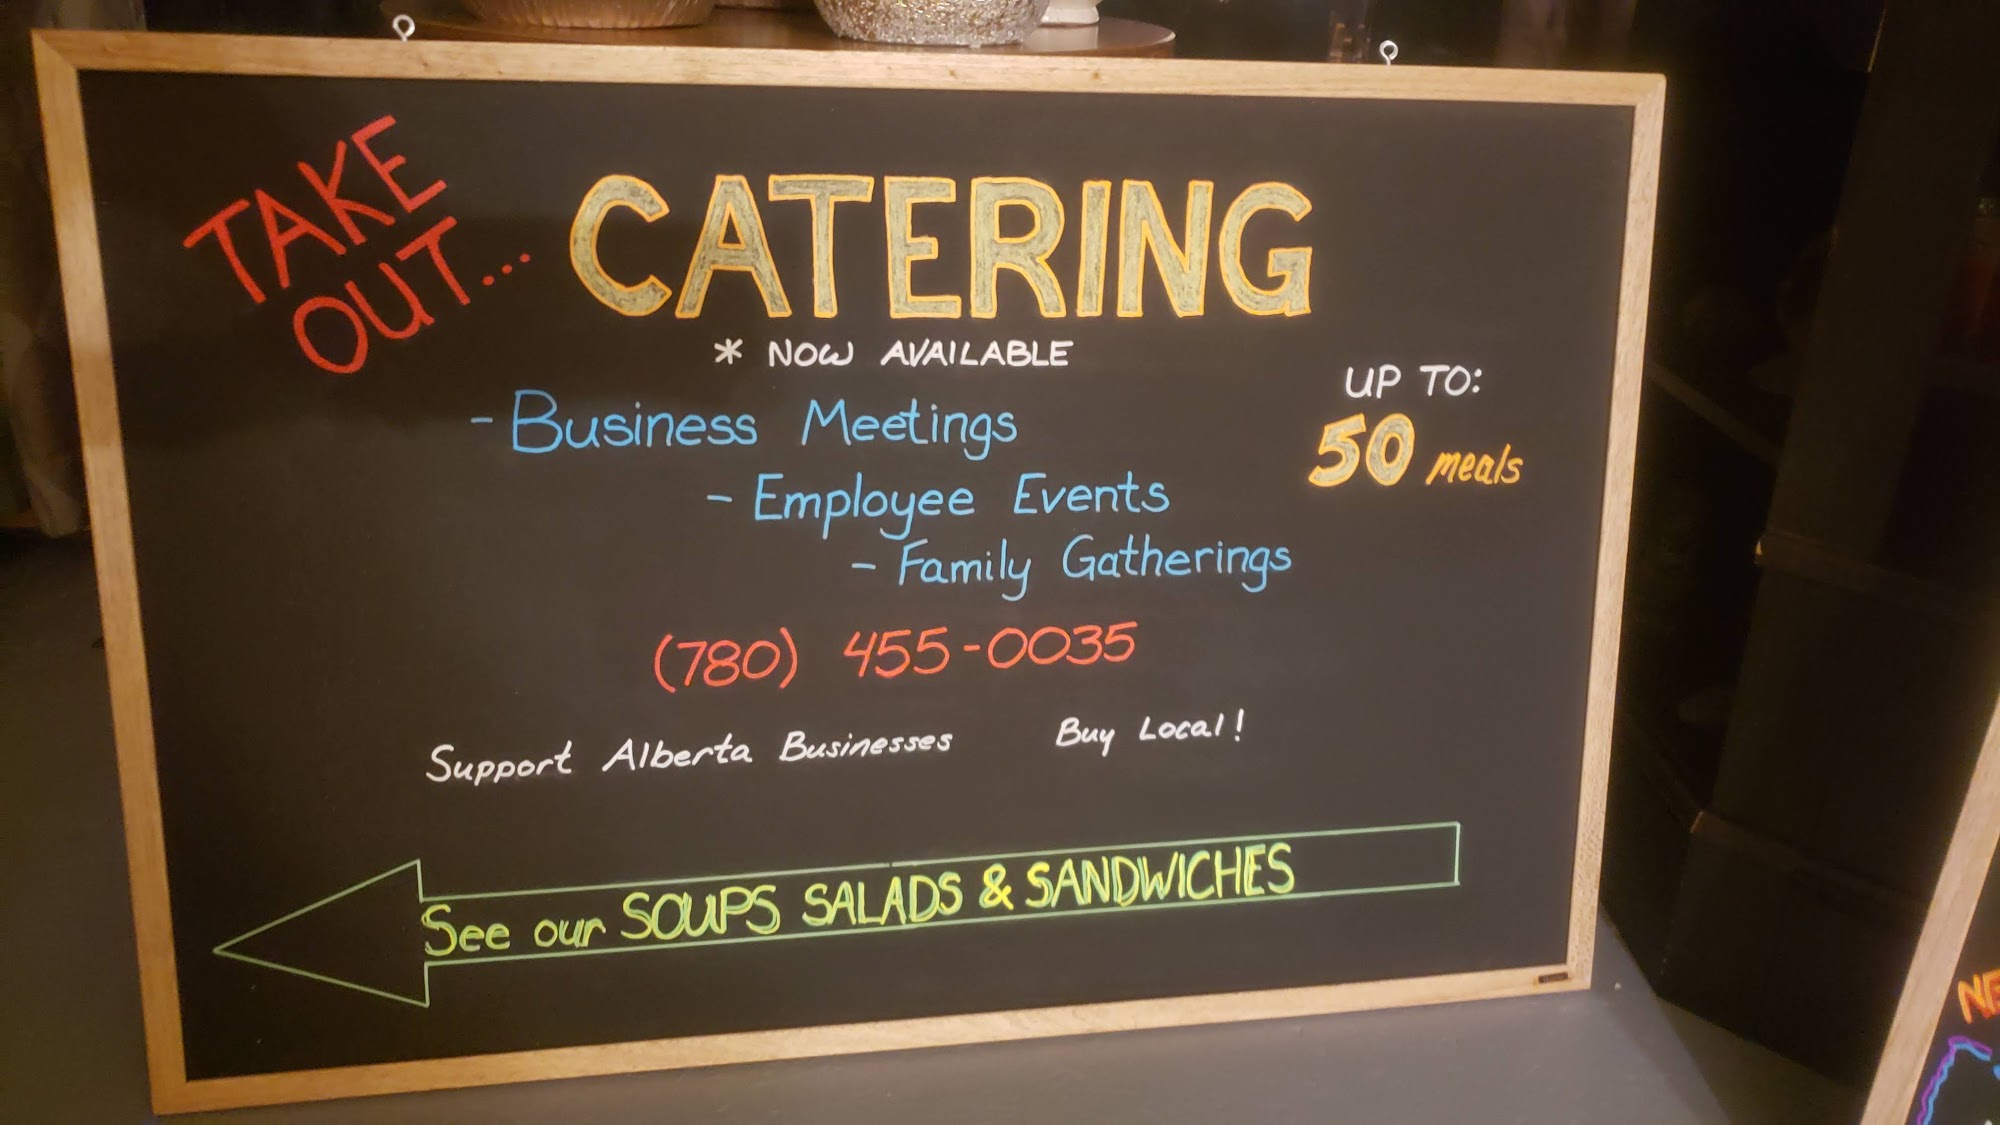 TAKE
OUT...
CATERING
* NOW AVAILABLE
- Business Meetings
- Employee Events
- Family Gatherings
UP TO:
50 meals
(780) 455-0035
Support Alberta Businesses Buy Local!
See our SOUPS SALADS & SANDWICHES
NE